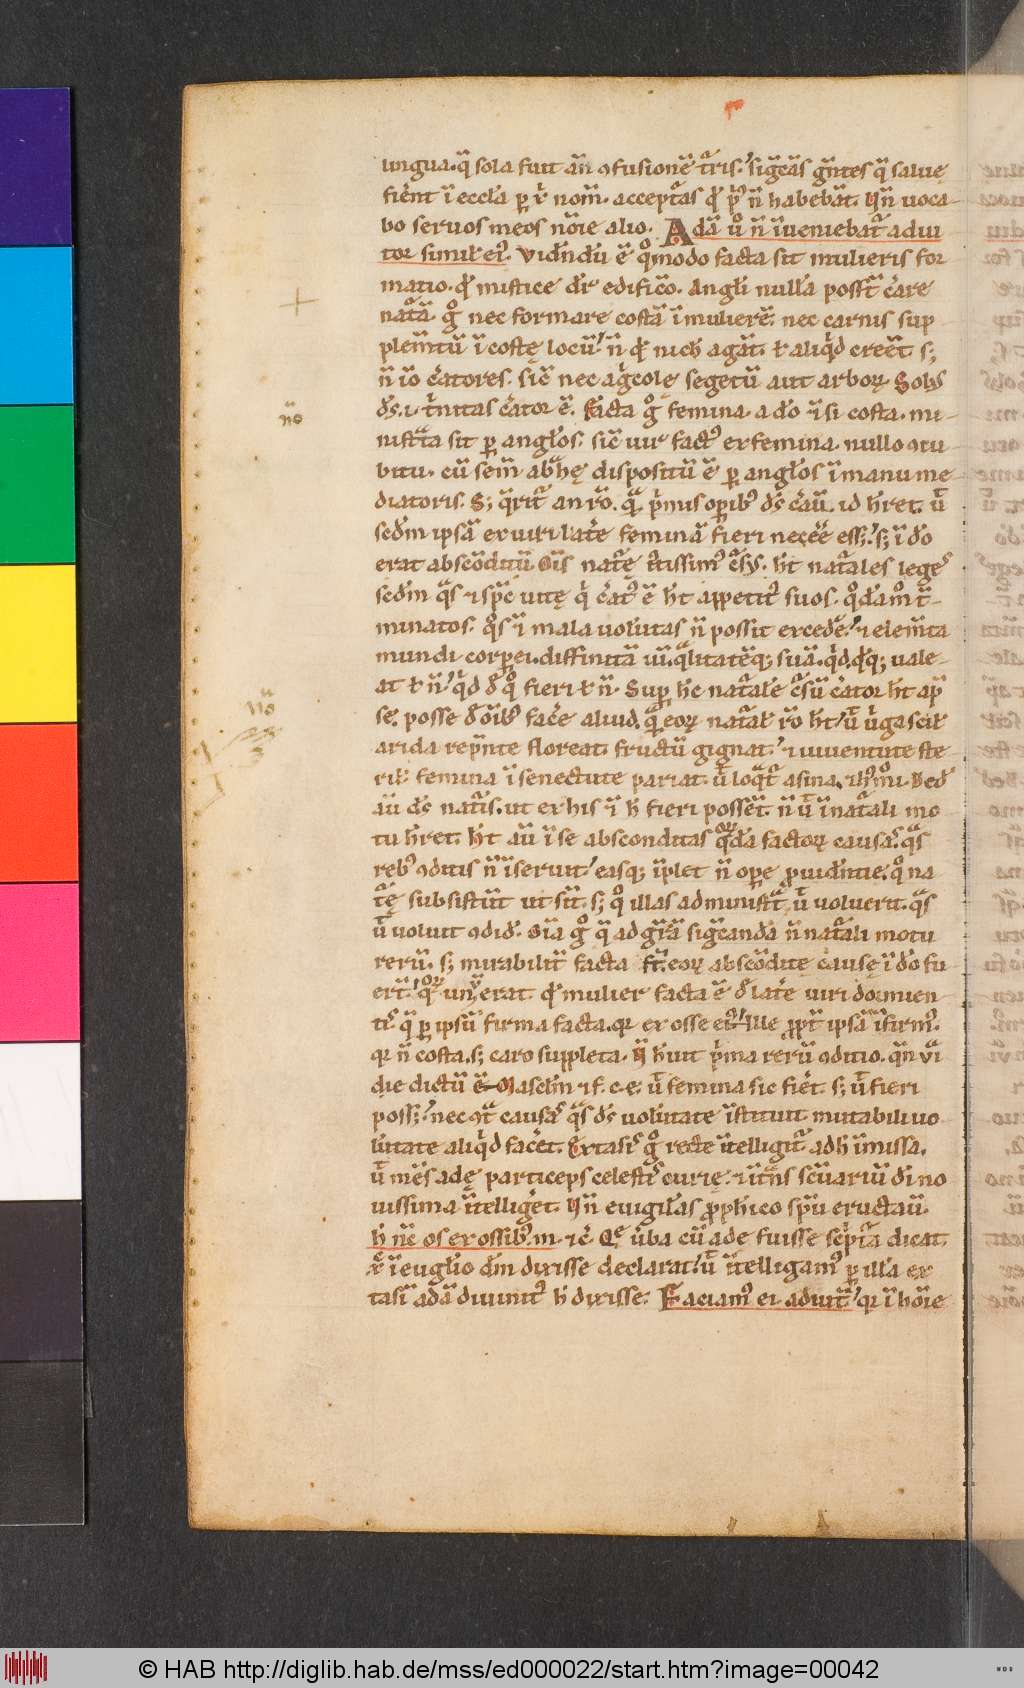 lingua. q̄ sola fuit an̄ ꝯfusionē t᷑ris. sig̅cās gn̄tes q̄ salue
fient ī eccl'a ꝑ x᷑ nom̄. acceptas qd᷑ p᷑ n̄ habebāt. Un̄ uoca
bo seruos meos noīe alio. Adā ū n̄ īueniebat᷑ adiu
tor simil' ei᷒. Vidn̄dū ē qͦmodo facta sit mulieris for
matio. qd᷑ mistice dr̄ edificō. Angl'i null'a poss̄t c̓are
nat᷑ā. gͦ nec formare costā ī mulierē. nec carnis sup
plem̄tū ī costę locū. n̄ qd᷑ nich' agāt. ł aliqd creēt. s;
n̄ iō c̓atores. sic̄ nec ag̓colę segetū aut arborꝝ. Solus
ds̄. i. t̓nitas c̓ator ē. Facta gͦ femina. a dō ⁊ si costa. mi-
nist̄ta sit ꝑ angl'os. sic̄ uir fact᷒ ex femina. nullo ꝯcu
bitu. cū sem̄ abrahę dispositū ē ꝑ angl'os ī manu me
diatoris. S; q̄rit᷑ an rō. qͣ p̓mus oꝑib᷒ ds̄ c̓auit. id h̄ret. ut
scdm̄ ipsā ex uiri lat̓e feminā fieri necēē ess;. s; ī dō
erat absconditū. Oīs nat᷑e c᷑tissim᷒ c᷑s᷒. h̄t nat᷑ales leges
scdm̄ qͣs ⁊ sp̄c uitę q̓ c̓at᷒ ē h̄t appetit᷒ suos. qͦdam̄ t᷑-
minatos. qͦs ⁊ mala uol'utas n̄ possit exced̓e. ⁊ elem̄ta
mundi corꝑei. diffinitā uim. qͣlitatēq; suā. q̓d. qͣq; uale-
at ł n̄. q̓d d̓ qͦ fieri ł n̄. Suꝑ h̄c nat᷑ale c᷑sū c̓ator h̄t ap̄
se. posse d̓ oīb᷒ fac̓e aliud. qͣ eorꝝ nat᷑al' rō h̄t. ut u̓ga scil'
arida repn̄te floreat. fructū gignat. ⁊ iuuentute ste-
ril' femina ī senectute pariat. ut loq̄t᷑ asina. ⁊ h᷒mōi. Ded̓
aū ds̄ nat᷑is. ut ex his ⁊ h̄ fieri poss̄t. n̄ ut ī nat᷑ali mo
tu h̄ret. h̄t aū ī se absconditas qͣrda factorꝝ causas. qͣs
reb᷒ ꝯditis n̄ īseruit. easq; īplet n̄ oꝑe ꝓuidn̄tie. qͦ na
t᷑ę subsistūt ut sīt. s; qͦ illas administͣt ut uoluerit. qͣs
ut uoluit ꝯdid̓. Oīa gͦ q̄ ad gr̄a sig̅candā n̄ nat᷑ali motu
rerū. s; mirabilit᷑ facta st̄. eorꝝ absconditę causę ī dō fu
ert̄. qͣrͮ un̄ erat. qd᷑ mulier facta ē d̓ lat̓e uiri dormien
tis. q̄ ꝑ ipsū firma facta. qꝛ ex osse ei᷒. Ille ꝓpt᷑ ipsā īfirm᷒.
qꝛ n̄ costa. s; caro suppleta. N̄ h̄uit p̓ma rerū ꝯditio. qn̄ vi͞
die dictū ē. Mascl'm ⁊ f. c. e. ut femina sic fiēt. s; ut fieri
poss;. nec ꝯt̄ causas qͣs ds̄ uol'utate īstituit. mutabili uo
l'utate aliqd fac̓et. Extasis gͦ recte ītelligit᷑ ad h̄ īmissa.
ut mēs adę particeps celestis curię. ⁊ int̓ns sc̄uariū dī no
uissima ītellig̓et. Un̄ euigil'as ꝓph̓ico sp̄u eructauit.
h̄ nc̄ os ex ossib᷒. m. ⁊c̓. Qͤ u̓ba cū adę fuisse sc̓ptͣ dicat.
x᷑ ī euglīo dm̄ dixisse declarat. ut ītelligam᷒ ꝑ ill'a ex
tasī adā diuinit᷒ h̄ dixisse. Faciam᷒ ei adiut᷑. qꝛ ī hoīe
nō
nō
© HAB http://diglib.hab.de/mss/ed000022/start.htm?image=00042